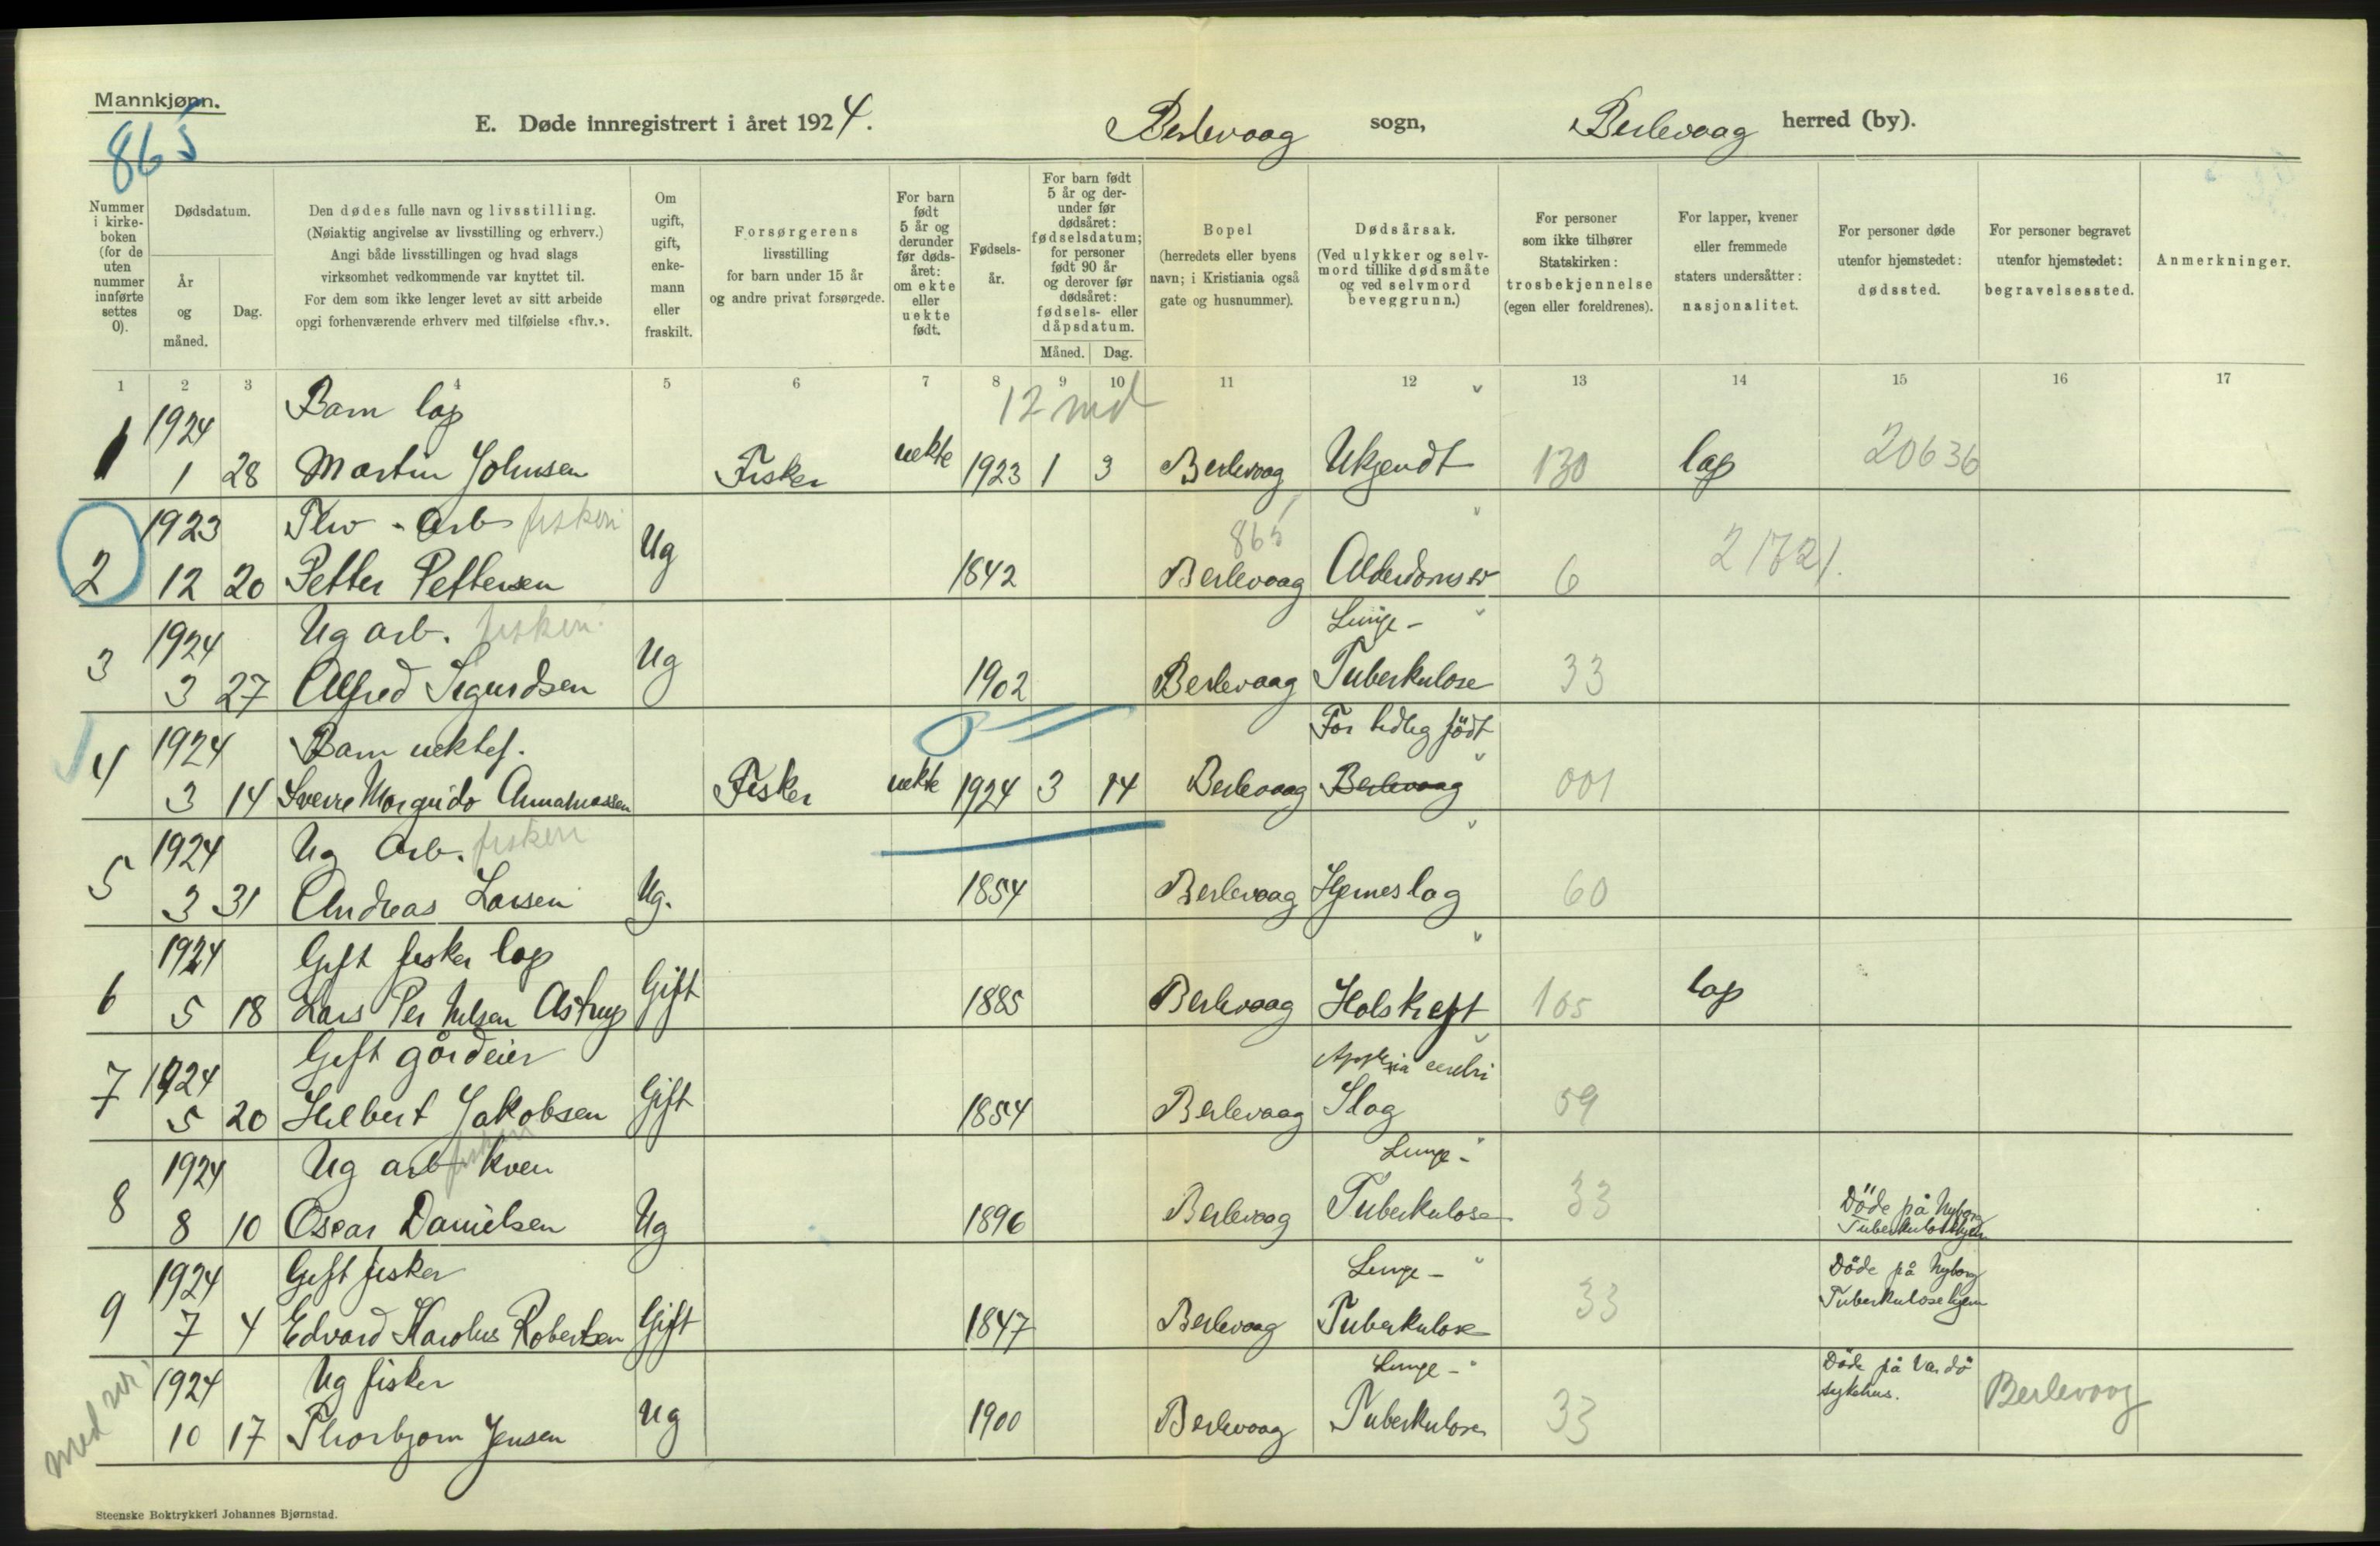 Mannkjønn.
865
E. Døde innregistrert i året 1924.
Berlevaag sogn,
Berlevaag herred (by).
Nummer i kirke-boken (for de uten nummer innførte settes 0).
Dødsdatum.
År og måned.
Dag.
Den dødes fulle navn og livsstilling.
(Nøiaktig angivelse av livsstilling og erhverv.)
Angi både livsstillingen og hvad slags
virksomhet vedkommende var knyttet til.
For dem som ikke lenger levet av sitt arbeide
opgi forhenværende erhverv med tilføielse «fhv.».
Om ugift, gift, enke-mann eller fraskilt.
Forsørgerens
livsstilling
for barn under 15 år
og andre privat forsørgede.
For barn født 5 år og derunder før døds-året: om ekte eller uekte født.
Fødsels-år.
For barn født 5 år og der-under før dødsåret: fødselsdatum; for personer født 90 år og derover før dødsåret: fødsels- eller dåpsdatum.
Måned.
Dag.
Bopel
(herredets eller byens
navn; i Kristiania også
gate og husnummer).
Dødsårsak.
(Ved ulykker og selv-
mord tillike dødsmåte
og ved selvmord
beveggrunn.)
For personer
som ikke tilhører
Statskirken:
trosbekjennelse
(egen eller foreldrenes).
For lapper, kvener
eller fremmede
staters undersåtter:
nasjonalitet.
For personer døde
utenfor hjemstedet:
dødssted.
For personer begravet
utenfor hjemstedet:
begravelsessted.
Anmerkninger.
1 2 3 4 5 6 7 8 9 10 11 12 13 14 15 16 17
1924 Barn lap 12 md
1 1 28 Martin Johnsen Fisker uekte 1923 1 3 Berlevaag Ukjendt 130 lap 20636
1923 arb fiskeri 865
2 12 20 Petter Pettersen Ug 1842 Berlevaag Alderdomssv 6 21721.
1924 Ug arb. fiskeri Lunge-
3 3 27 Alfred Sigurdsen Ug 1902 Berlevaag Tuberkulose 33
1924 Barn uektef. For tidlig födt
4 3 14 Sverre Fisker uekte 1924 3 14 Berlevaag Berlevaag 001
1924 Ug arb. fiskeri
5 3 31 Andreas Larsen Ug. 1854 Berlevaag Hjerneslag 60
1924 Gift fisker lap
6 5 18 Lars Per Nilsen Astrup Gift 1885 Berlevaag 165 lap
1924 Gift gårdeier cerebri
7 5 20 Hilbert Jakobsen Gift 1854 Berlevaag Slag 59
1924 Ug arb fiskeri kven Lunge-
8 8 10 Oscar Danielsen Ug 1896 Berlevaag Tuberkulose 33 Döde på Nyborg Tuberkulosehjem
1924 Gift fisker Lunge- Döde på Nyborg
9 7 4 Edvard Karolus Robertsen Gift 1847 Berlevaag Tuberkulose 33 Tuberkulosehjem
1924 Ug fisker Lunge- Döde på Vardö
10 17 Thorbjørn Jensen Ug 1900 Berlevaag Tuberkulose 33 sykehus. Berlevaag
Steenske Boktrykkeri Johannes Bjørnstad.